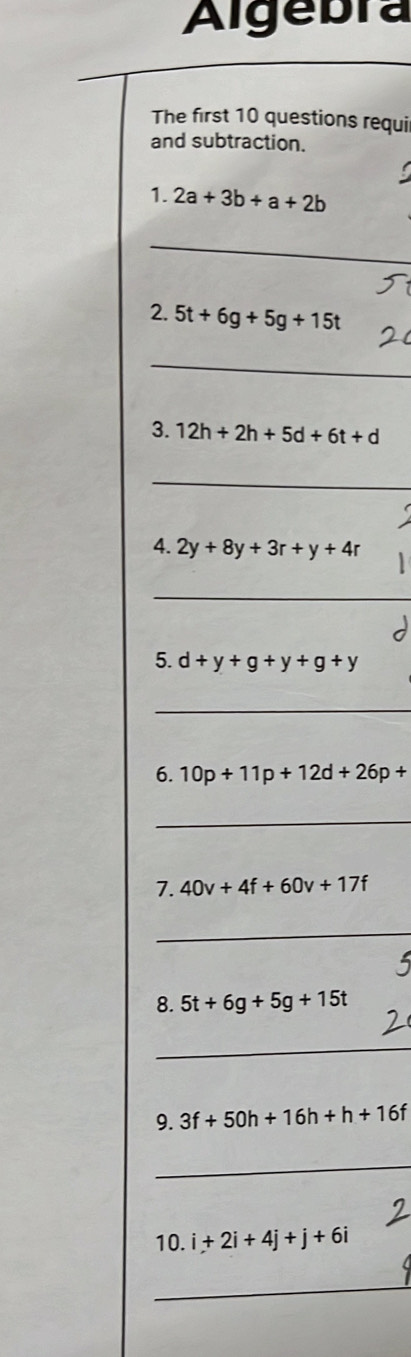 Algebra
The first 10 questions
and subtraction.
1. 2a + 3b + a + 2b
5t
2. 5t + 6g + 5g + 15t
20
3. 12h + 2h + 5d + 6t + d
4. 2y + 8y + 3r + y + 4r
d
5. d + y + g + y + g + y
6. 10p + 11p + 12d + 26p +
7. 40v + 4f + 60v + 17f
5
8. 5t + 6g + 5g + 15t
2
9. 3f + 50h + 16h + h + 16f
2
10. i + 2i + 4j + j + 6i